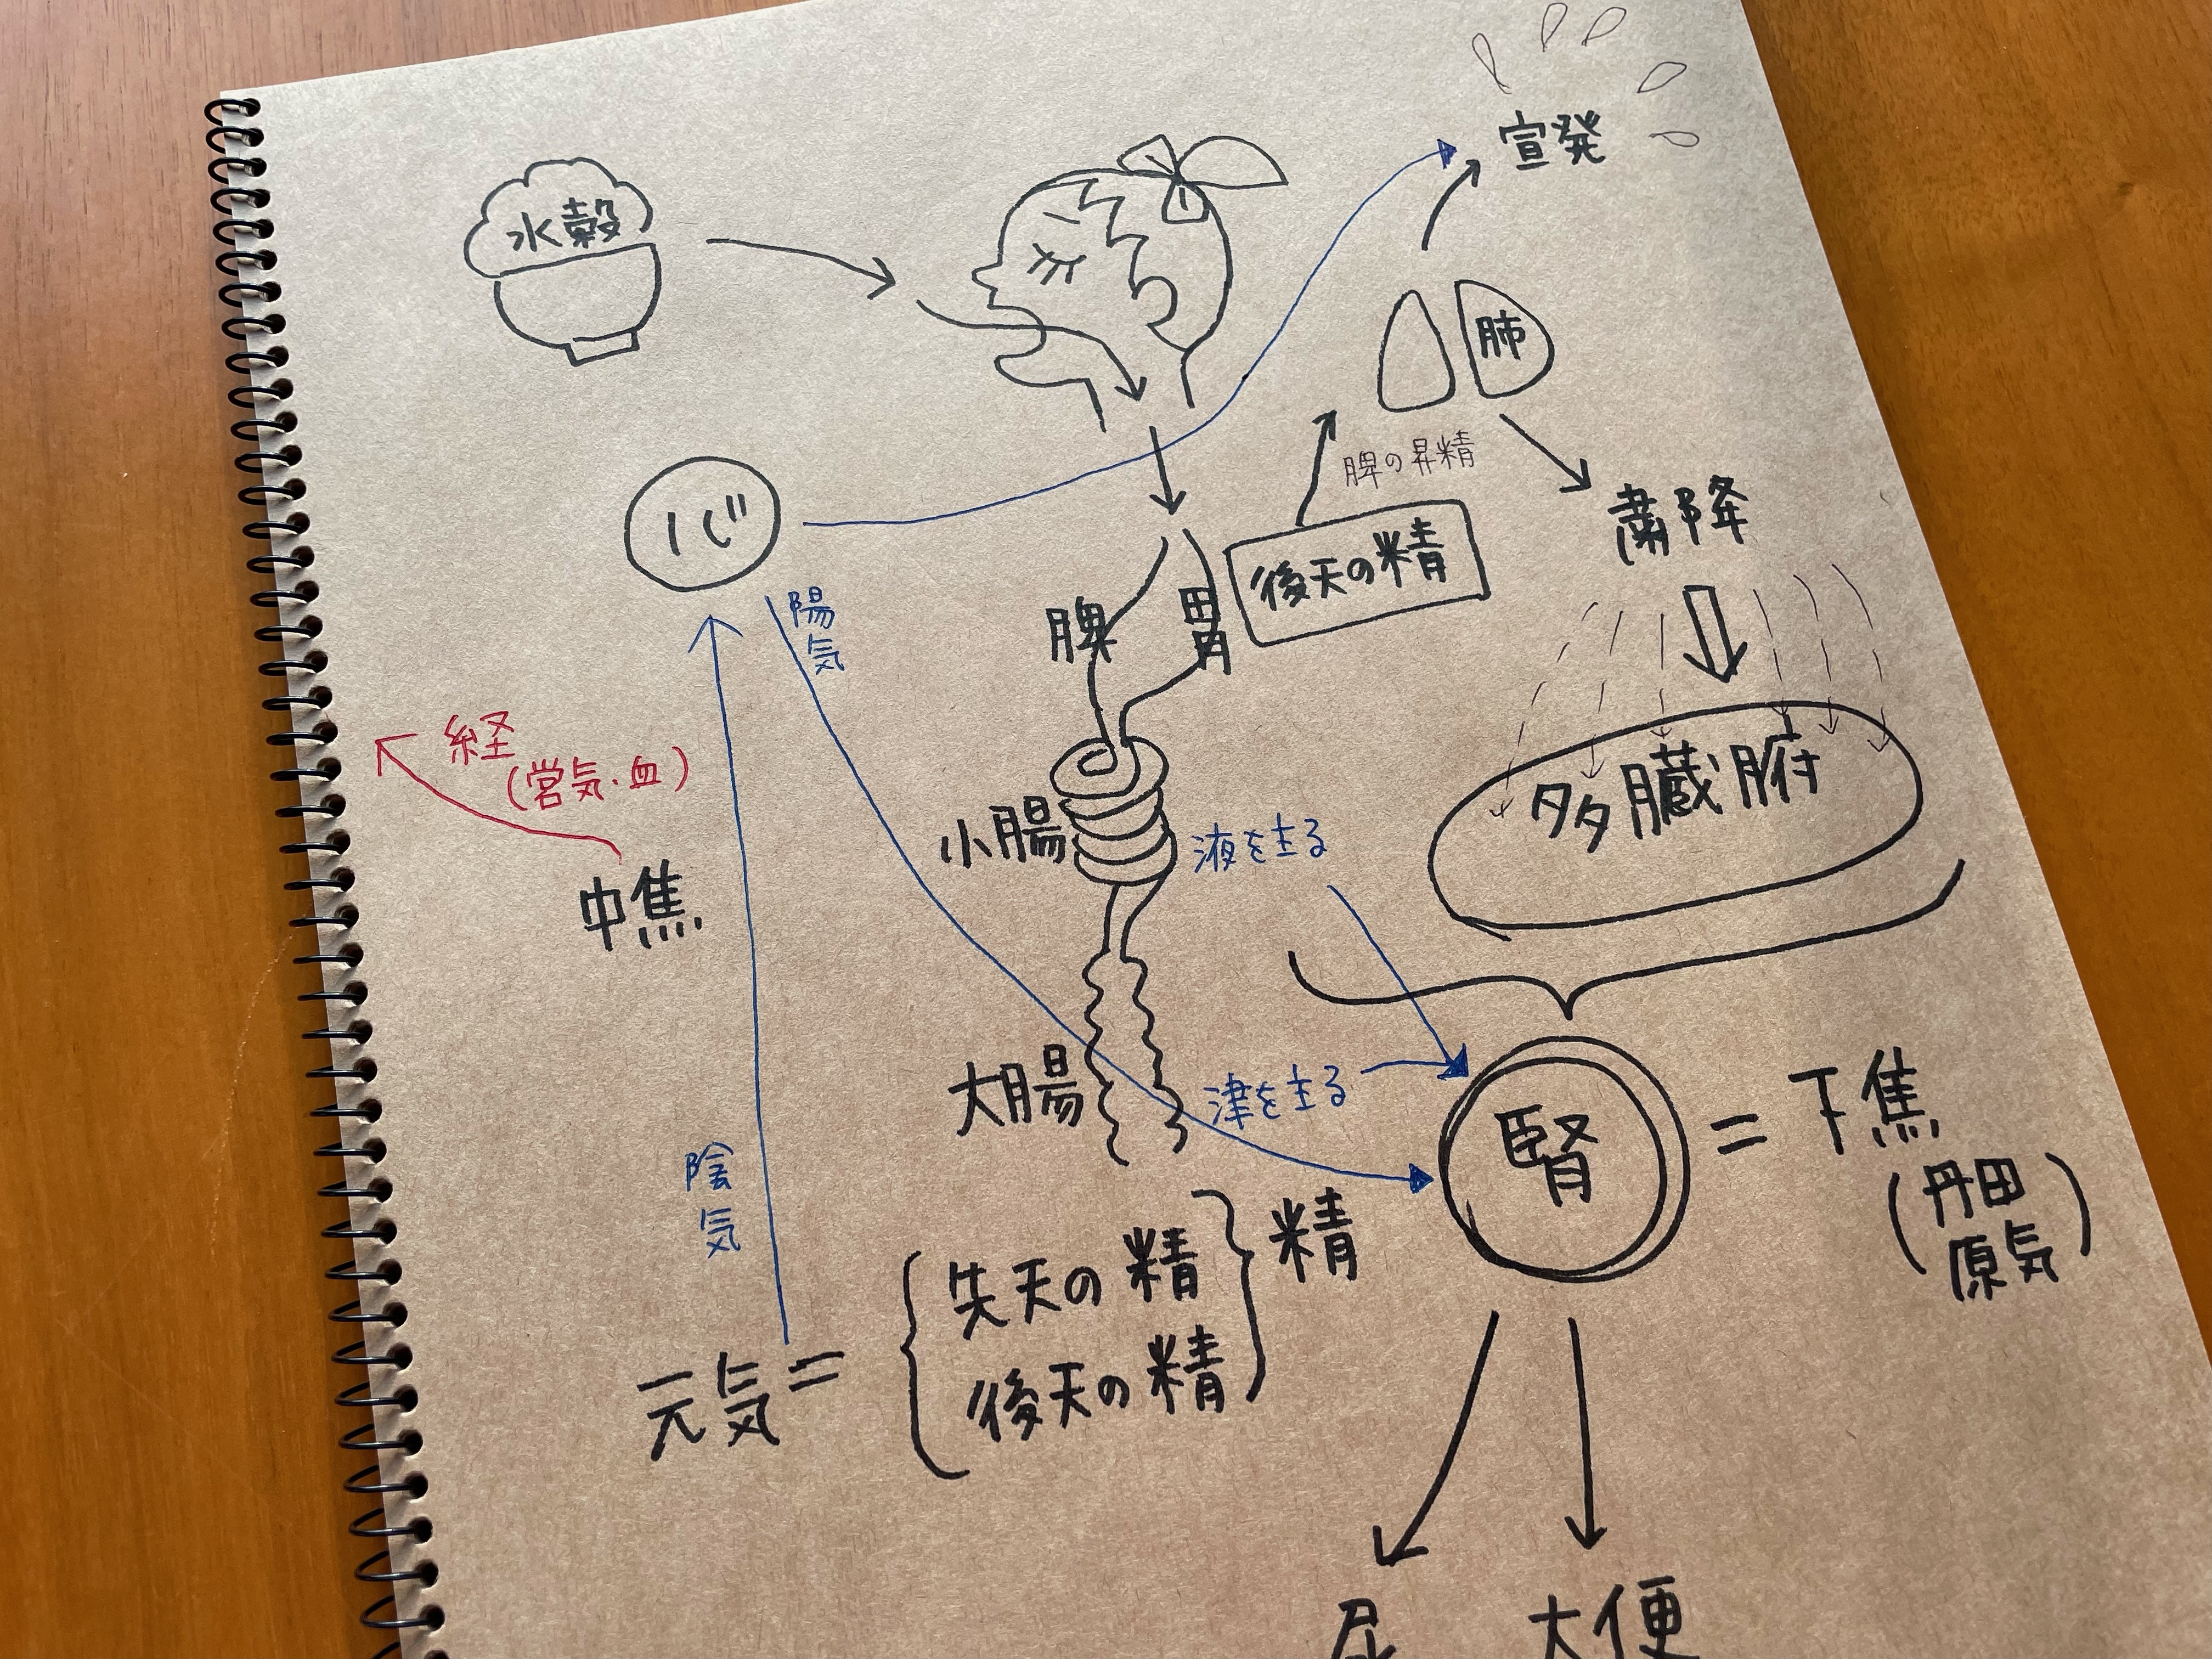 宣発
水穀
肺
脾の昇精
心
粛降
後天の精
陽気
脾
胃
経
(営気・血)
多臓腑
小腸
液を主る
中焦
大腸
津を主る
腎
= 下焦
(丹田
原気)
陰気
精
先天の精
元気=
後天の精
尿
大便